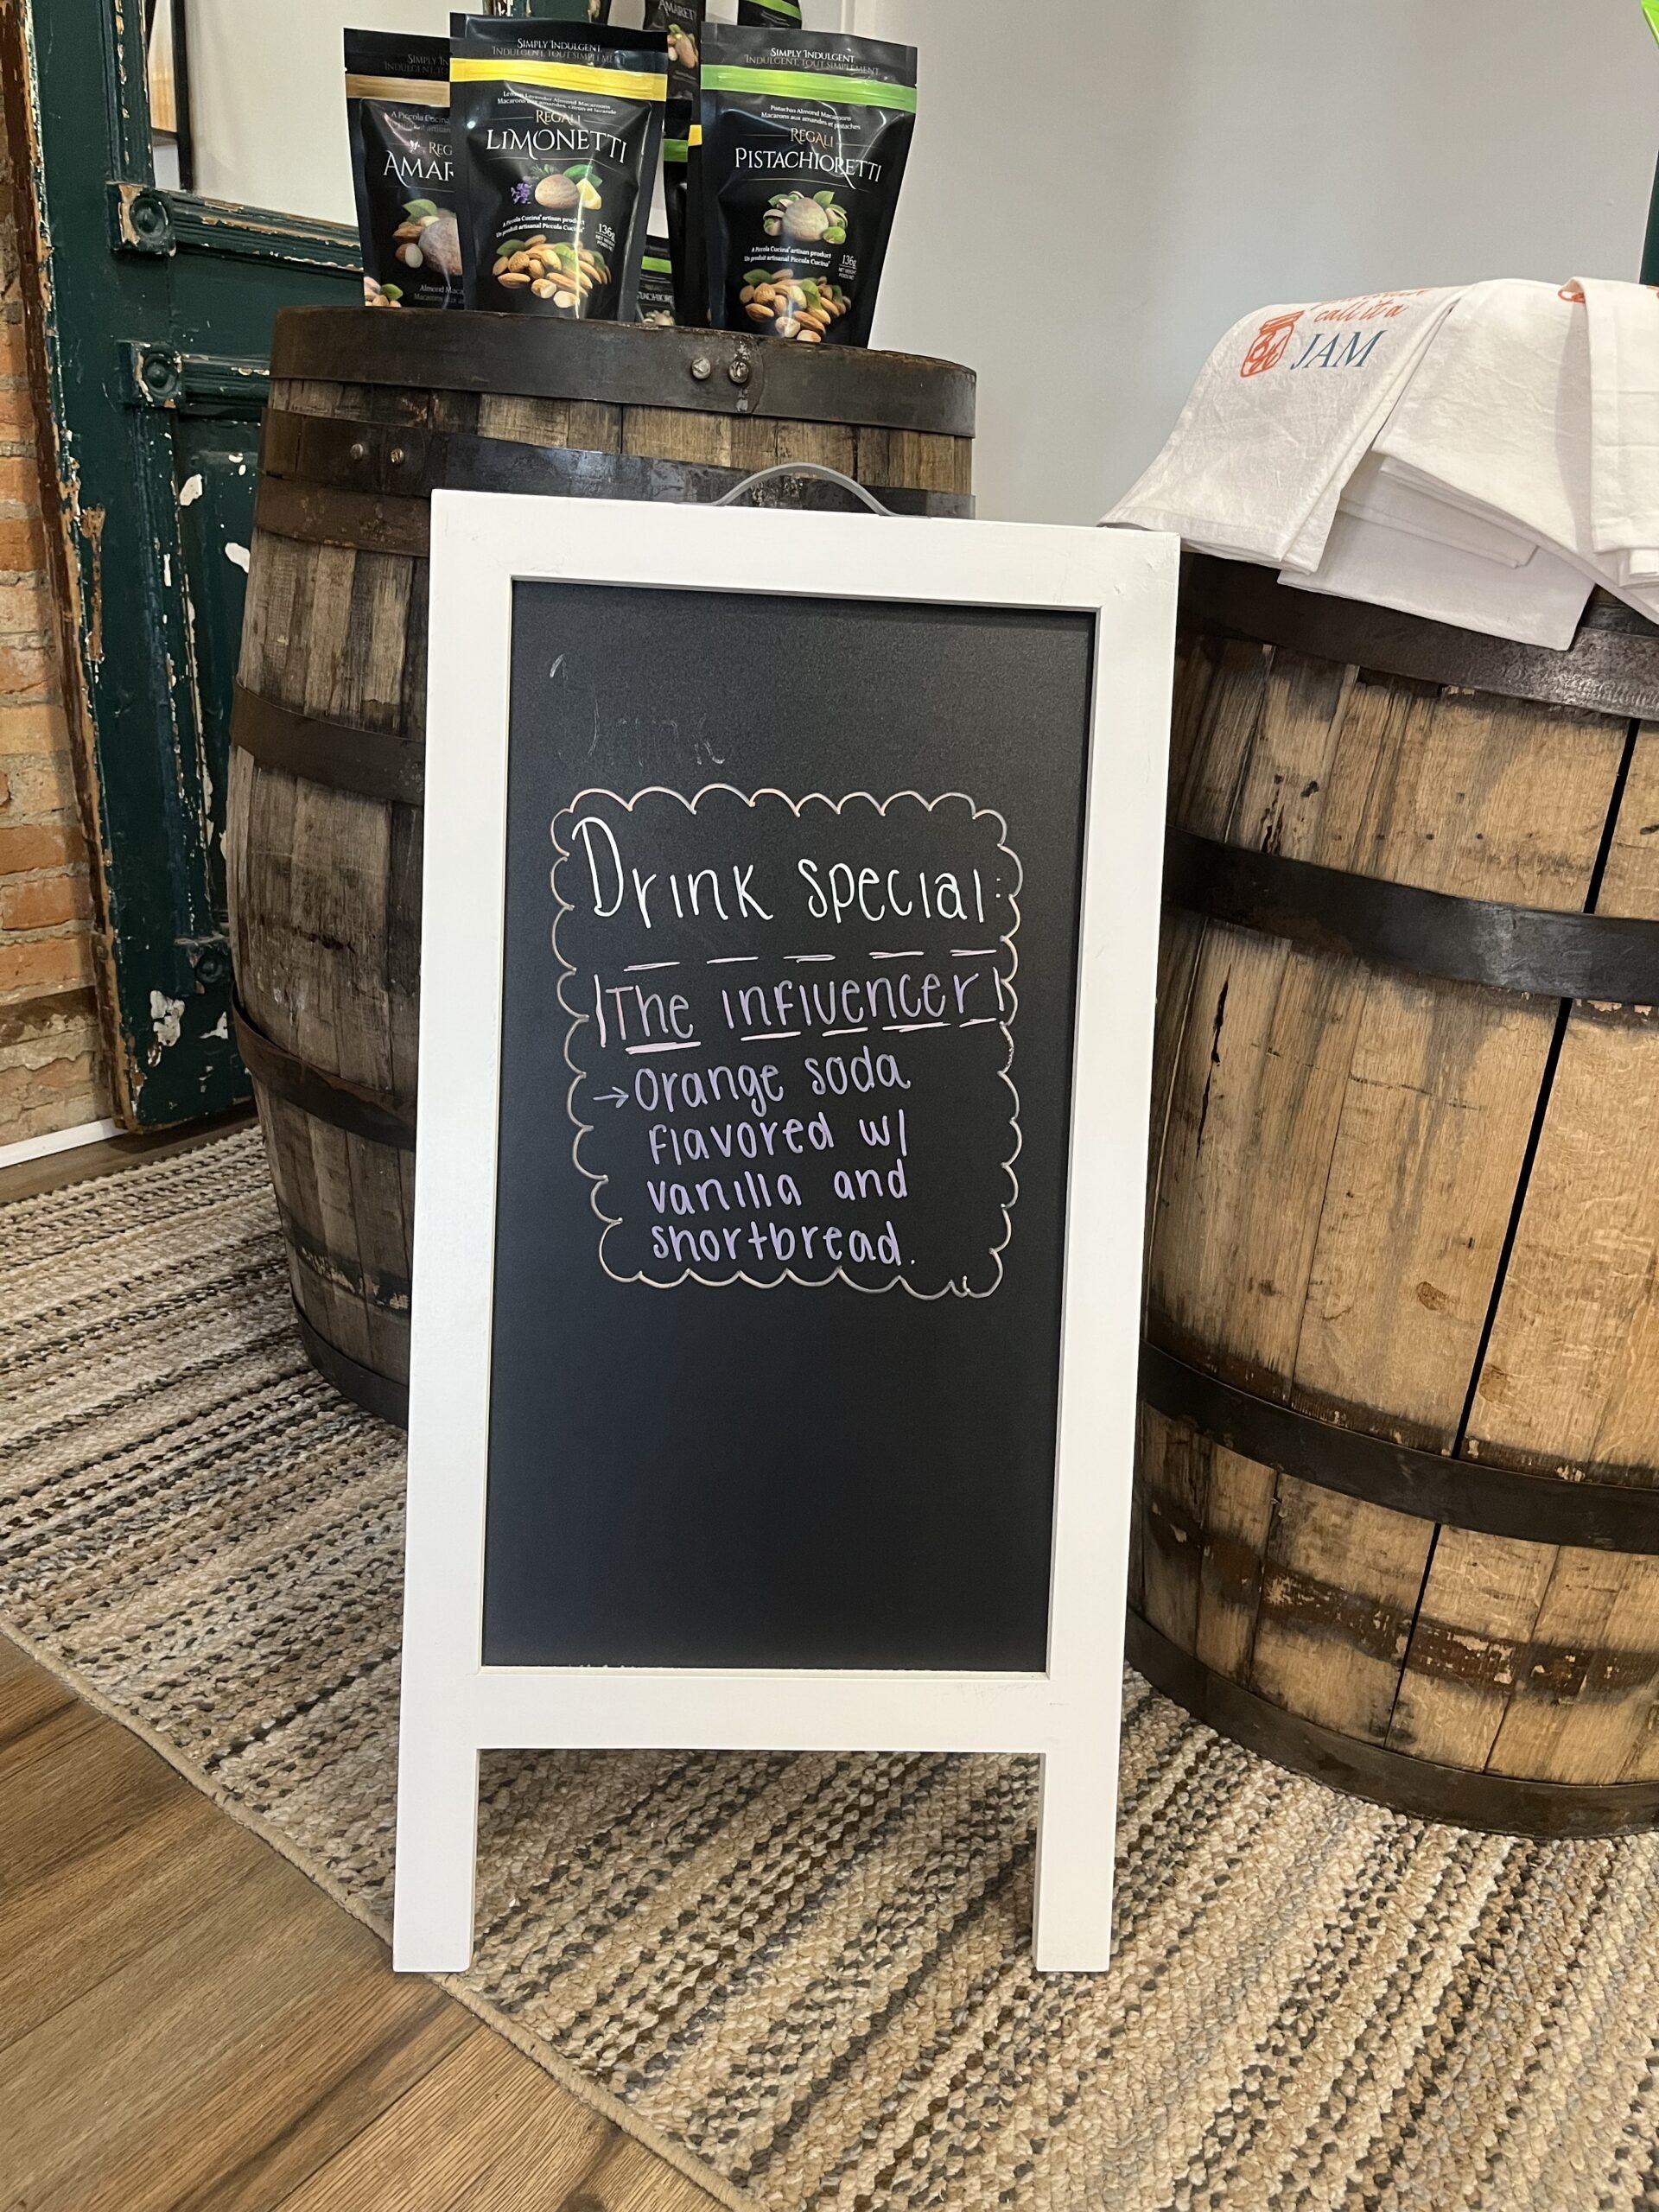 SIMPLY INDULGENT
INDULGENT, TOUT SIMPLEMENT
Lemon Lavender Almond Macaroons
Macarons aux amandes, citron et lavande
REGALI
LIMONETTI
A Piccola Cucina® artisan product
Un produit artisanal Piccola Cucina®
136g
SIMPLY INDULGENT
INDULGENT, TOUT SIMPLEMENT
Pistachio Almond Macaroons
Macarons aux amandes et pistaches
REGALI
PISTACHIORETTI
A Piccola Cucina® artisan product
Un produit artisanal Piccola Cucina®
136g
call it a
JAM
Drink special:
The influencer
→ orange soda
flavored w/
vanilla and
shortbread.